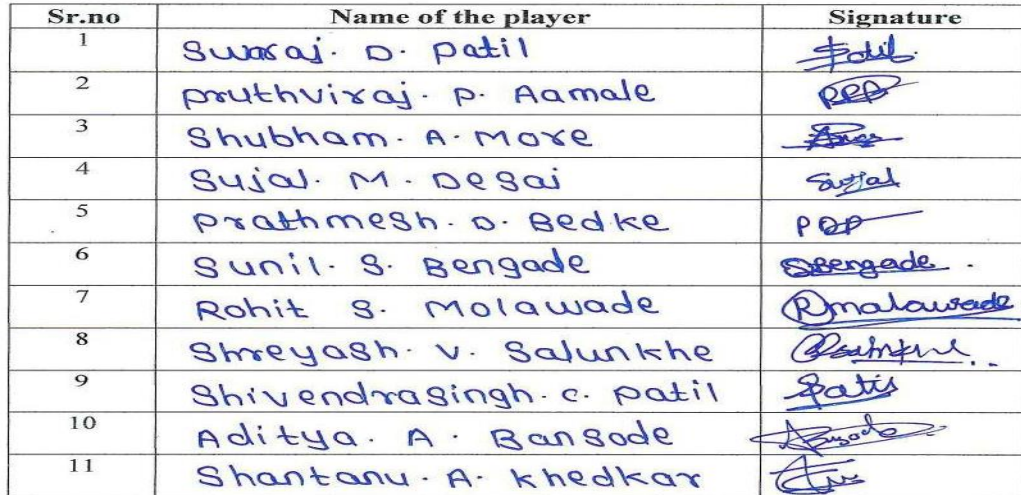 Sr.no Name of the player Signature
1 Swaraj. D. Patil Patil
2 Pruthviraj. P. Aamale PPA
3 Shubham. A. More
4 Sujal. M. Desai Sujal
5 Prathmesh. D. Bedke
6 Sunil. S. Bengade SBengade.
7 Rohit S. Molawade Rmalawade
8 Shreyash. V. Salunkhe
9 Shivendrasingh. C. Patil Patil
10 Aditya. A. Bansode
11 Shantanu. A. Khedkar